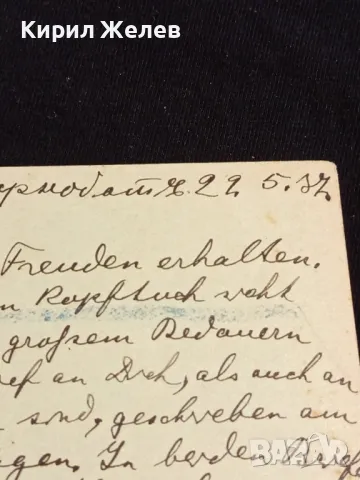 Кирил Желев
рнобатъ 22. 5. 37.
Freuden erhalten.
n Kopftuch
großem Bedauern
ef an Dich, als auch an
sind, geschrieben am
gen. In beiden
bazar